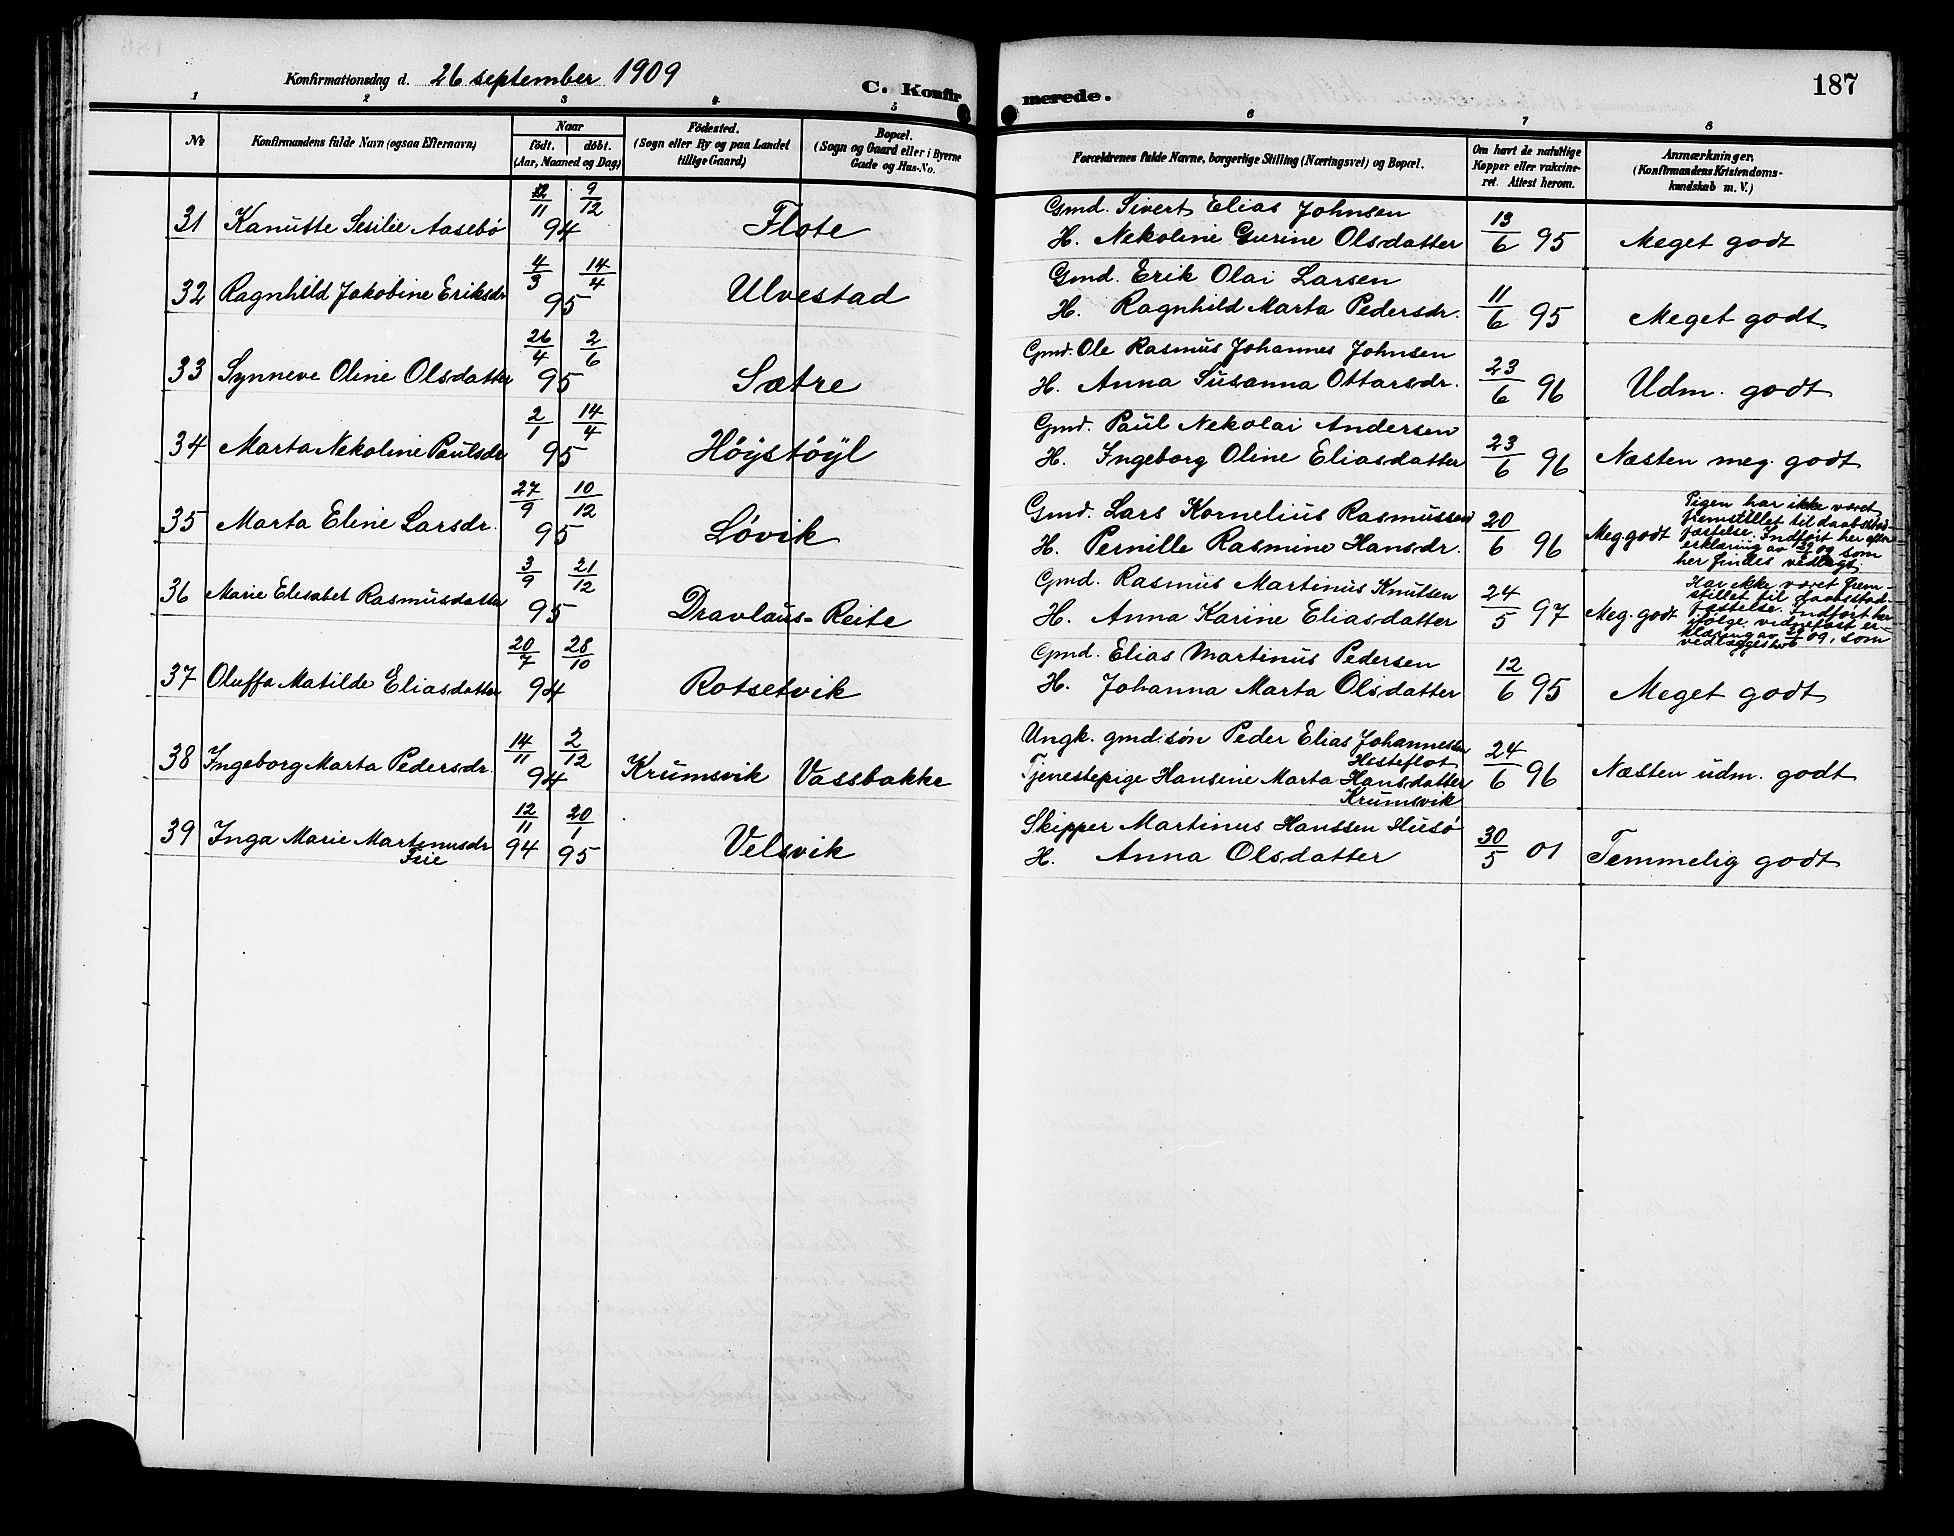 Konfirmationsdag d. 26 september 1909
C. Konfirmerede.
187
1 2 3 4 5 6 7 8
No
Konfirmandens fulde Navn (ogsaa Efternavn)
Naar
født. døbt.
(Aar, Maaned og Dag)
Fødested.
(Sogn eller By og paa Landet
tillige Gaard)
Bopæl.
(Sogn og Gaard eller i Byerne
Gade og Hus-No.
Forældrenes fulde Navne, borgerlige Stilling (Næringsvei) og Bopæl.
Om havt de naturlige
Kopper eller vaccine-
ret. Attest herom.
Anmærkninger.
(Konfirmandens Kristendoms-
kundskab m. V.)
31 Kanutte Sesilie Aasebø /11 9/12 94 Flote
Gmd. Sivert Elias Johnsen
H. Nekoline Gurine Olsdatter 13/6 95 Meget godt
32 Ragnhild Jakobine Eriksdr 4/3 14/4 95 Ulvestad
Gmd. Erik Olai Larsen
H. Ragnhild Marta Pedersdr. 11/6 95 Meget godt
33 Synneve Oline Olsdatter 26/4 2/6 95 Sætre
Gmd. Ole Rasmus Johannes Johnsen
H. Anna Susanna Ottarsdr. 23/6 96 Udm. godt
34 Marta Nekoline Paulsdr 2/1 14/4 95 Høystøyl
Gmd. Paul Nekolai Andersen
H. Ingeborg Oline Eliasdatter 23/6 96 Næsten meg. godt
35 Marta Eline Larsdr. 27/9 10/12 95 Løvik
Gmd. Lars Kornelius Rasmussen
H. Pernille Rasmine Hansdr. 20/6 96 Meg. godt
Pigen har ikke været
fremstillet til daabsstad-
fæstelse. Indført her efter
erklæring av 09 som
her findes vedlagt.
36 Marie Elesabet Rasmusdatter 3/9 21/12 95 Dravlaus-Reite
Gmd. Rasmus Martinus Knutsen
H. Anna Karine Eliasdatter 24/5 97 Meg. godt
Har ikke været frem-
stillet til daabsstad-
fæstelse. Indført her
ifølge vidnefast er-
klæring av 09, som
vedlægges
37 Oluffa Matilde Eliasdatter 20/7 28/10 94 Rotsetvik
Gmd. Elias Martinus Pedersen
H. Johanna Marta Olsdatter 12/6 95 Meget godt
38 Ingeborg Marta Pedersdr. 14/11 2/12 94 Krumsvik Vassbakke
Ungk. gmd.søn Peder Elias Johannessen
Hesteflot
Tjenestepige Hansine Marta Hansdatter
Krumsvik 24/6 96 Næsten udm. godt
39 Inga Marie Martinusdr 12/11 94 20/1 95 Velsvik
Feie
Skipper Martinus Hanssen Husø
H. Anna Olsdatter 30/5 01 Temmelig godt